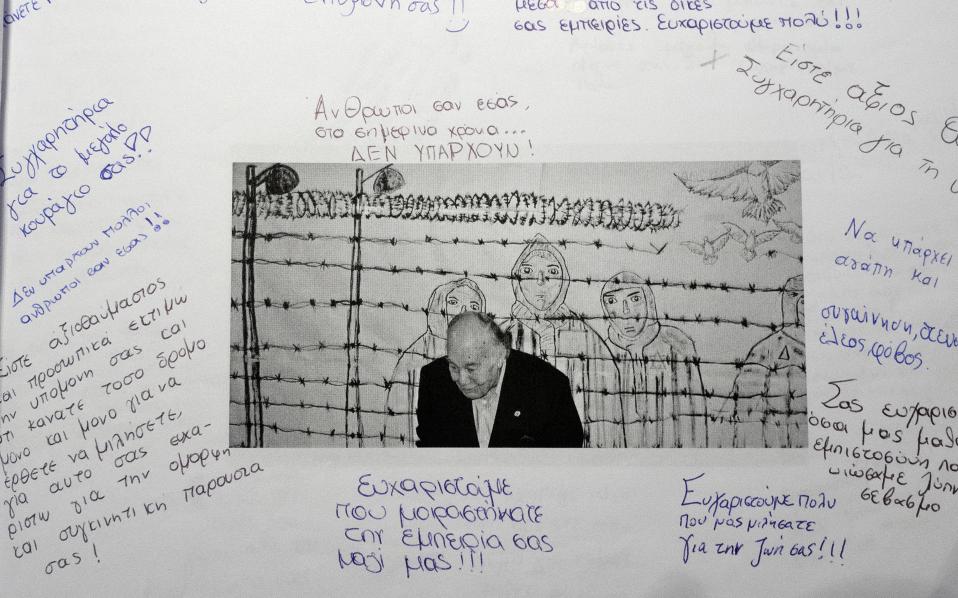 μέσα από τις δικές
σας εμπειρίες. Ευχαριστούμε πολύ!!!
σας!!
Είστε άξιος
Συγχαρητήρια για τη
Άνθρωποι σαν εσάς,
στα σημερινά χρόνια...
ΔΕΝ ΥΠΑΡΧΟΥΝ!
Συγχαρητήρια
για το μεγάλο
κουράγιο σας!!
Δεν υπάρχουν πολλοί
άνθρωποι σαν εσάς!!
Είστε αξιοθαύμαστος
και προσωπικά εκτιμώ
την υπομονή σας και
ότι κάνατε τόσο δρόμο
μόνο και μόνο για να
έρθετε να μιλήσετε,
για αυτό σας ευχα-
ριστώ για την όμορφη
και συγκινητική παρουσία
σας!
Να υπάρχει
αγάπη και
συγαίνηση,
έλεος, φόβος.
Σας ευχαρισ
όσα μας μαθ
εμπιστοσύνη
νιώσαμε λύπη
σεβασμό
Ευχαριστούμε
που μοιραστήκατε
την εμπειρία σας
μαζί μας!!!
Ευχαριστούμε πολύ
που μας μιλήσατε
για την ζωή σας!!!